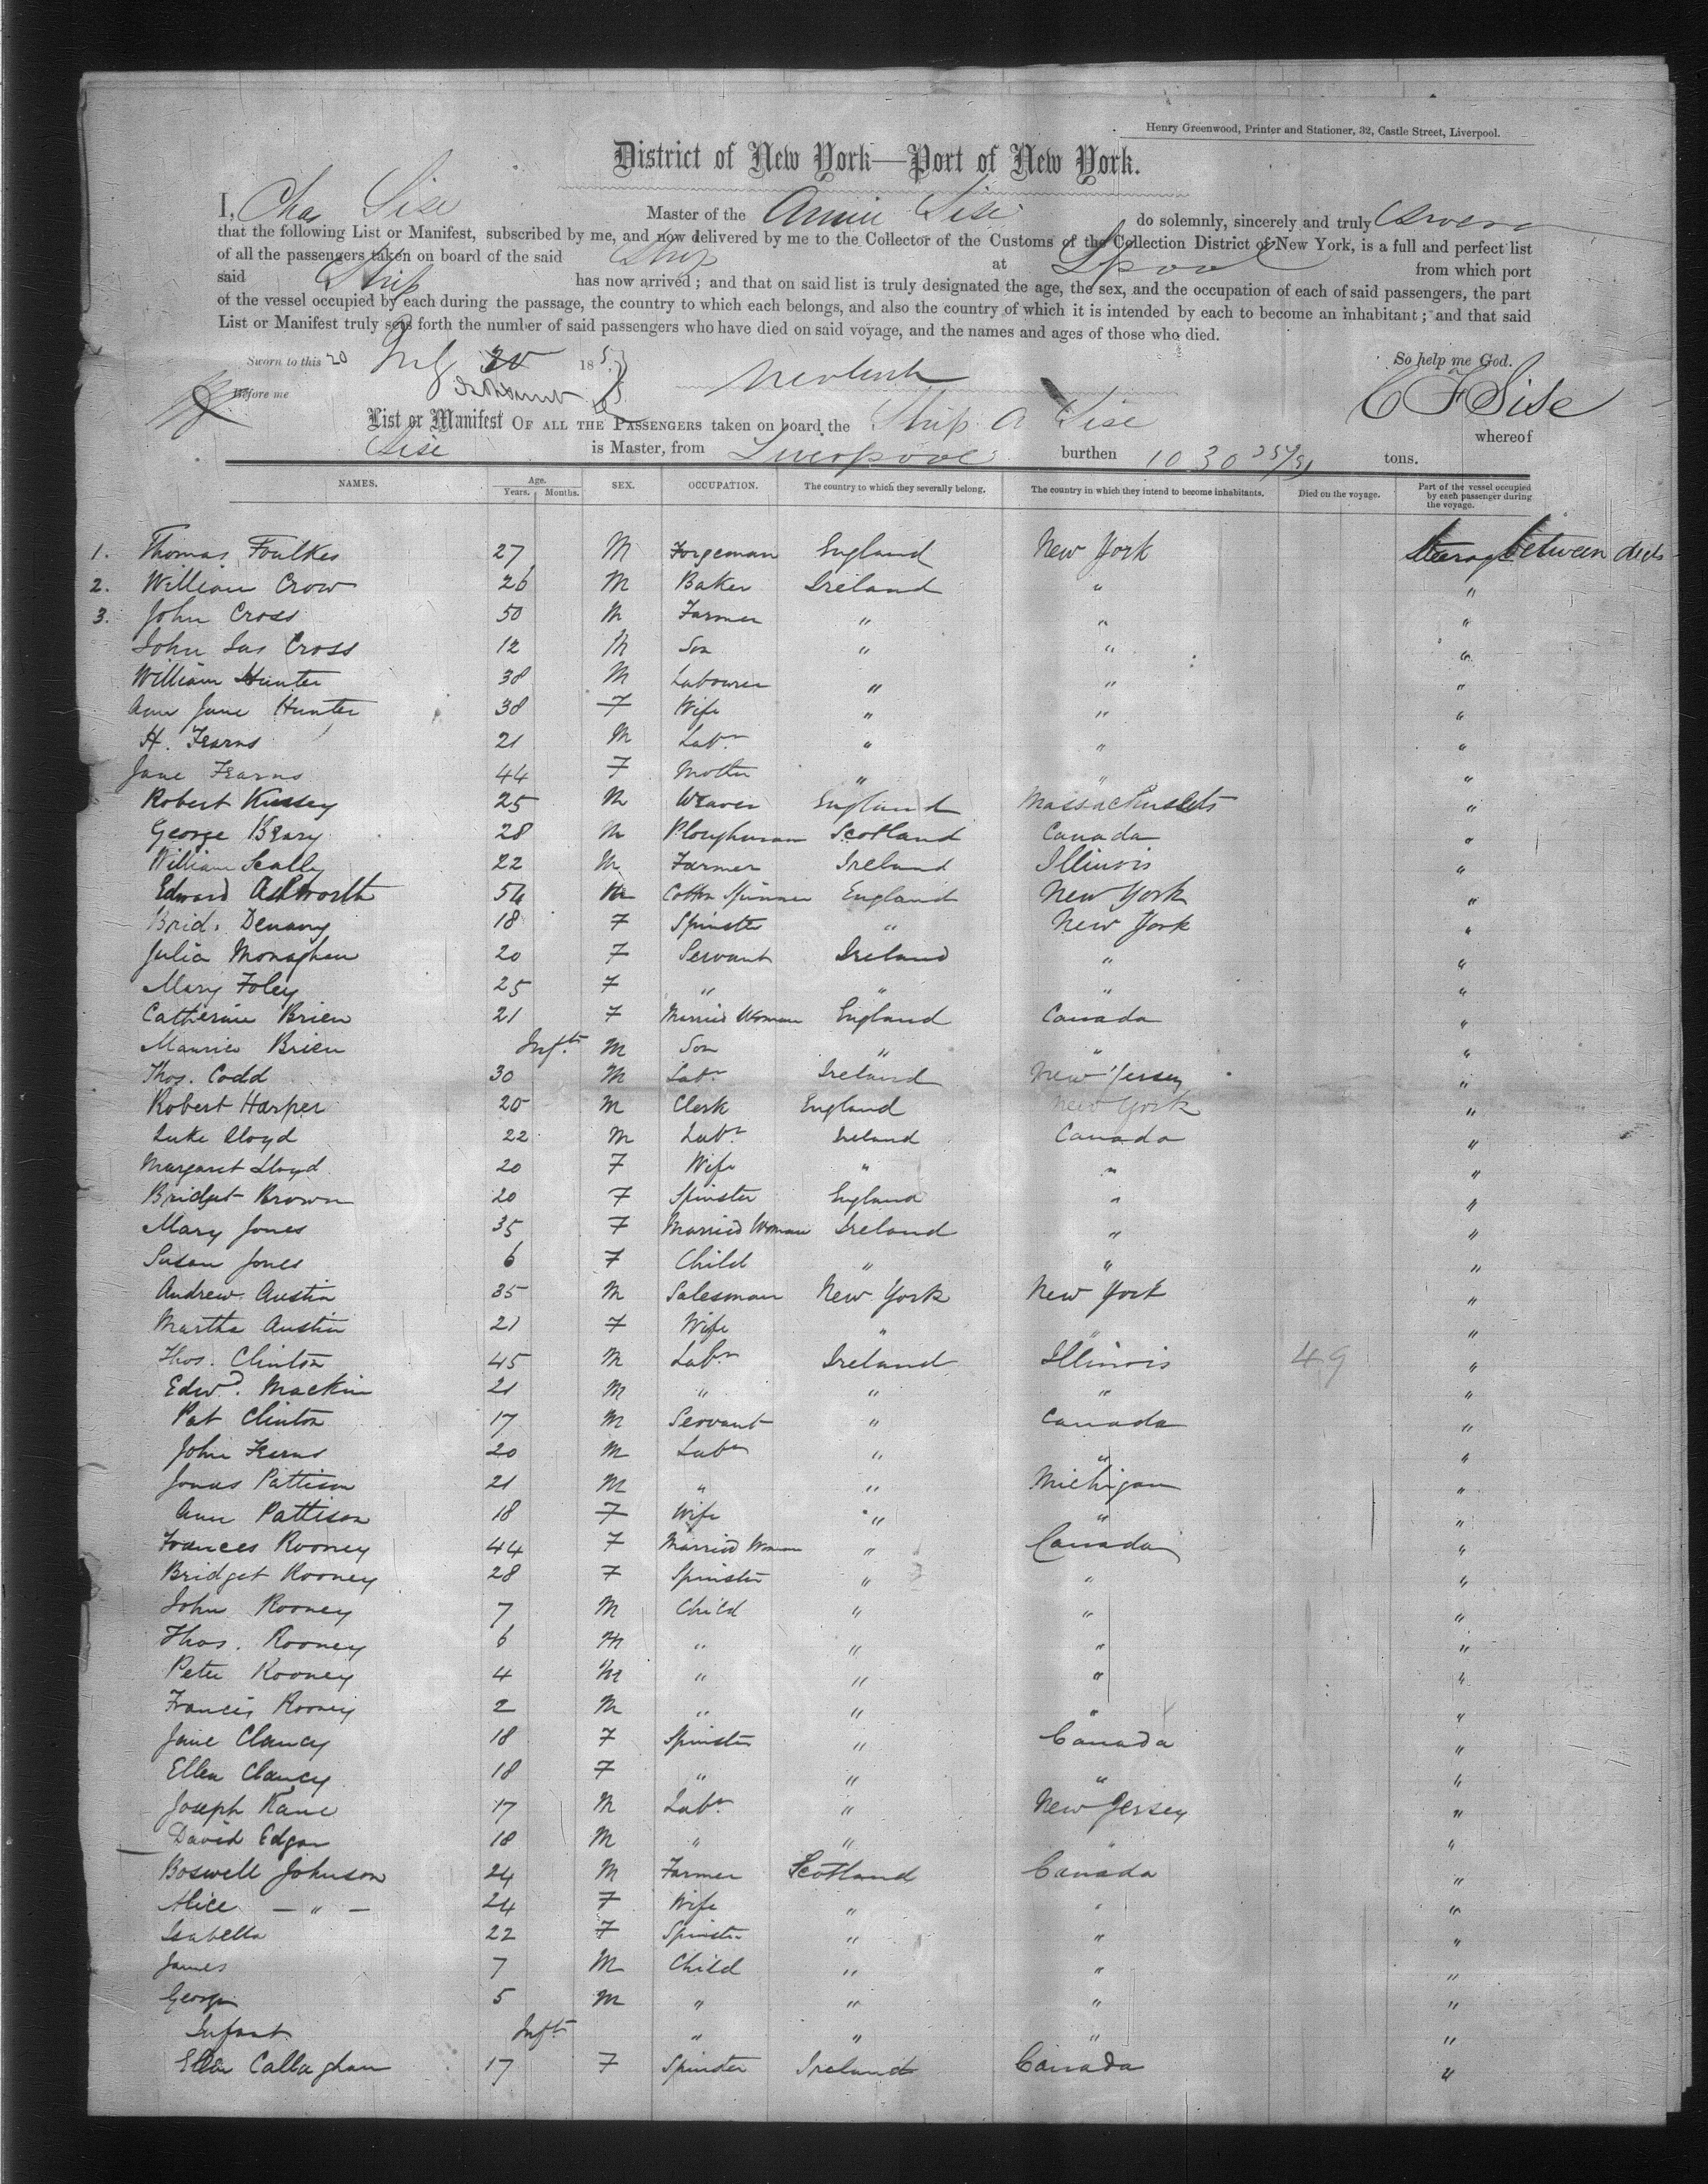 Henry Greenwood, Printer and Stationer, 32, Castle Street, Liverpool.
District of New York—Port of New York.
I, Chas Sise Master of the Annie Sise do solemnly, sincerely and truly
that the following List or Manifest, subscribed by me, and now delivered by me to the Collector of the Customs of the Collection District of New York, is a full and perfect list
of all the passengers taken on board of the said Ship at Lpool from which port
said Ship has now arrived; and that on said list is truly designated the age, the sex, and the occupation of each of said passengers, the part
of the vessel occupied by each during the passage, the country to which each belongs, and also the country of which it is intended by each to become an inhabitant; and that said
List or Manifest truly sets forth the number of said passengers who have died on said voyage, and the names and ages of those who died.
Sworn to this 20 July 185 So help me God.
Before me C F Sise
List or Manifest OF ALL THE PASSENGERS taken on board the Ship A Sise whereof
Sise is Master, from Liverpool burthen 1030 tons.
NAMES. Age. Years. Months. SEX. OCCUPATION. The country to which they severally belong. The country in which they intend to become inhabitants. Died on the voyage. Part of the vessel occupied by each passenger during the voyage.
1. Thomas Foulkes 27 M Forgeman England New York between decks
2. William Crow 26 M Baker Ireland " "
3. John Cross 50 M Farmer " " "
John Jas Cross 12 M Son " " "
William Hunter 38 M Labourer " " "
Ann Jane Hunter 38 F Wife " " "
H. Fearns 21 M Labr " " "
Jane Fearns 44 F Mother " " "
Robert 25 M Weaver England Massachusets "
George Beary 28 M Ploughman Scotland Canada "
William Scally 22 M Farmer Ireland Illinois "
Edward Ashworth 54 M Cotton Spinner England New York "
Brid. 18 F Spinster " New York "
Julia Monaghan 20 F Servant Ireland " "
Mary Foley 25 F " " " "
Catherine Brien 21 F Married Woman England Canada "
Maurice Brien Inft M Son " " "
Thos. Codd 30 M Labr Ireland New Jersey "
Robert Harper 20 M Clerk England New York "
Luke Lloyd 22 M Labr Ireland Canada "
Margaret Lloyd 20 F Wife " " "
Bridget Brown 20 F Spinster England " "
Mary Jones 35 F Married Woman Ireland " "
Susan Jones 6 F Child " " "
Andrew Austin 35 M Salesman New York New York "
Martha Austin 21 F Wife " " "
Thos. Clinton 45 M Labr Ireland Illinois 49 "
Edwd. Mackin 21 M " " " "
Pat Clinton 17 M Servant " Canada "
John Kerns 20 M Labr " " "
Jonas Pattison 21 M " " Michigan "
Ann Pattison 18 F Wife " " "
Frances Rooney 44 F Married Woman " Canada "
Bridget Rooney 28 F Spinster " " "
John Rooney 7 M Child " " "
Thos. Rooney 6 M " " " "
Peter Rooney 4 M " " " "
Francis Rooney 2 M " " " "
Jane Clancy 18 F Spinster " Canada "
Ellen Clancy 18 F " " " "
Joseph Kane 17 M Labr " New Jersey "
David Edgar 18 M " " " "
Boswell Johnson 24 M Farmer Scotland Canada "
Alice — " — 24 F Wife " " "
Isabella 22 F Spinster " " "
James 7 M Child " " "
George 5 M " " " "
Infant Inft " " " "
Ellen Callaghan 17 F Spinster Ireland Canada "